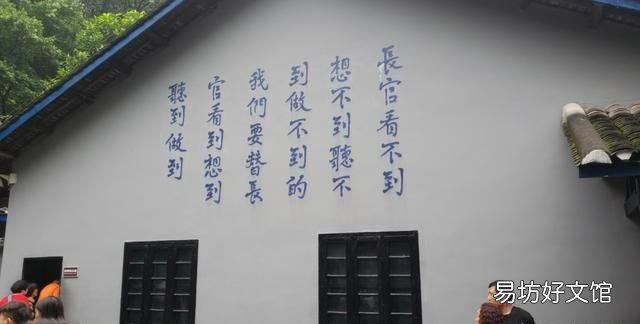 長官看不到
想不到聽不
到做不到的
我們要替長
官看到想到
聽到做到
易坊好文馆